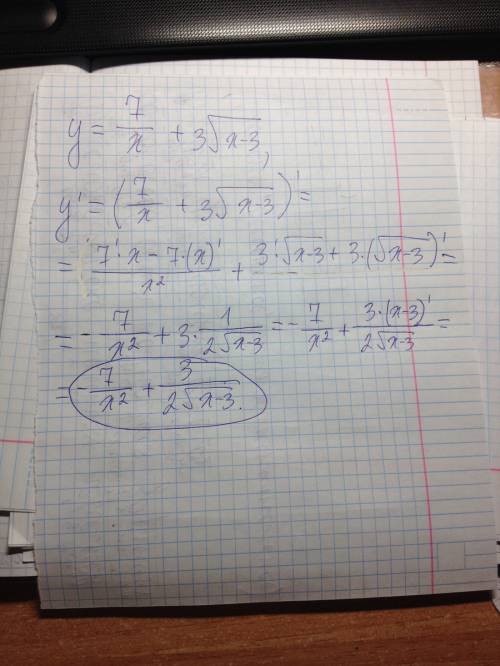 y = 7/x + 3√(x-3),
y' = (7/x + 3√(x-3))' =
= (7'·x - 7·(x)')/x² + 3'·√(x-3) + 3·(√(x-3))' =
= -7/x² + 3·1/(2√(x-3)) = -7/x² + (3·(x-3)')/(2√(x-3)) =
= -7/x² + 3/(2√(x-3)).